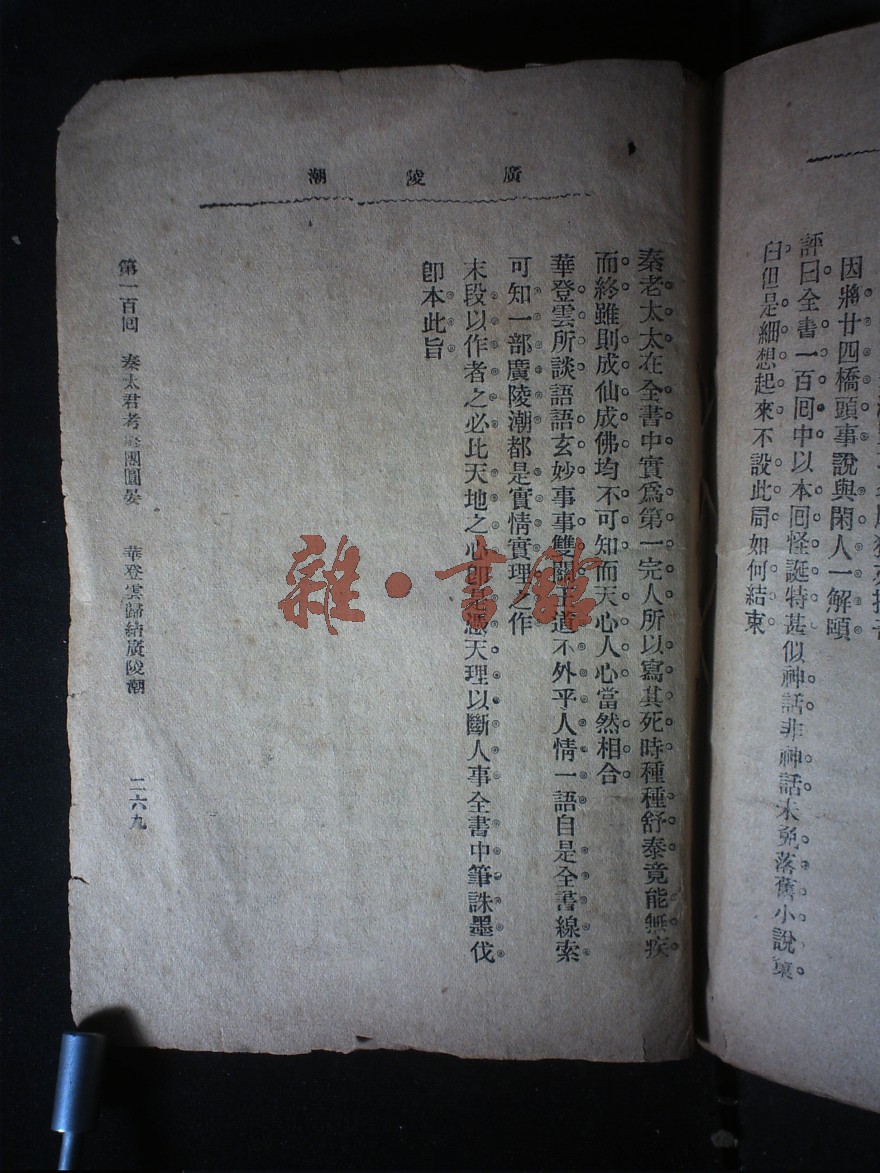 因將廿四橋頭事說與閑人一解頤
評曰全書一百回中以本回怪誕特甚似神話非神話未免落舊小說窠
臼但是細想起來不設此局如何結束
廣陵潮
秦老太太在全書中實爲第一完人所以寫其死時種種舒泰竟能無疾
而終雖則成仙成佛均不可知而天心人心當然相合
華登雲所談語語玄妙事事雙關王道不外乎人情一語自是全書線索
可知一部廣陵潮都是實情實理之作
末段以作者之必比天地之心卽是憑天理以斷人事全書中筆誅墨伐
卽本此旨
第一百回 秦太君考終團圓宴 華登雲歸結廣陵潮 二六九
雜·書館